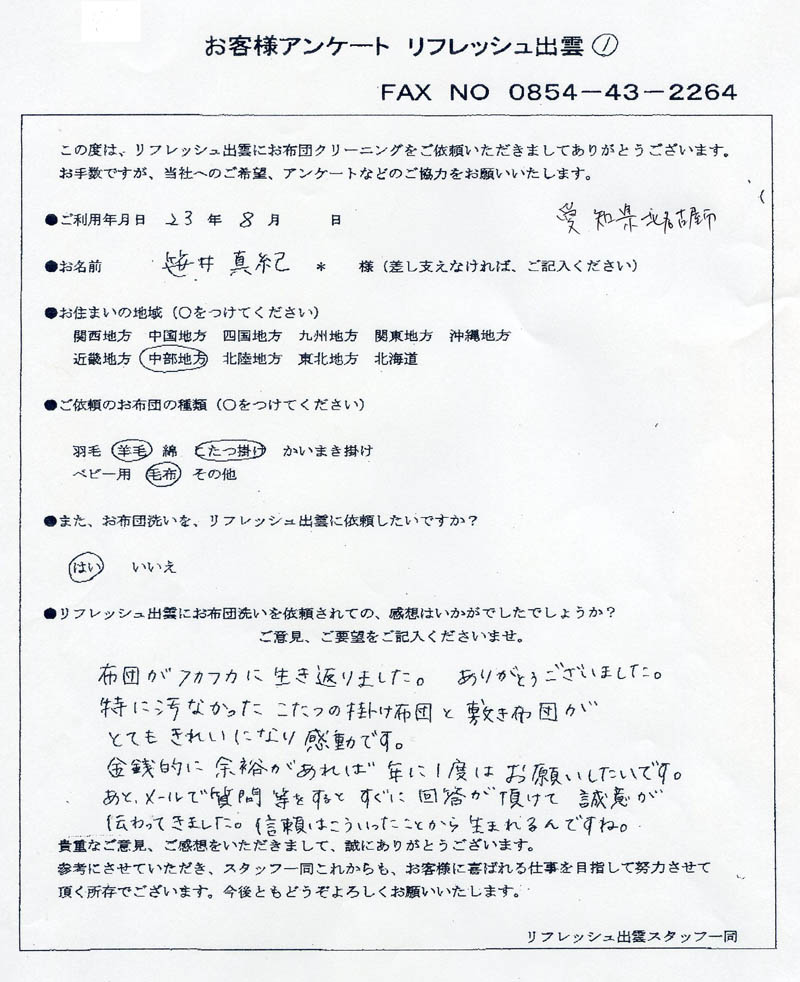 お客様アンケート リフレッシュ出雲 ①
FAX NO 0854-43-2264
この度は、リフレッシュ出雲にお布団クリーニングをご依頼いただきましてありがとうございます。
お手数ですが、当社へのご希望、アンケートなどのご協力をお願いいたします。
●ご利用年月日 23 年 8 月 日 愛知県北名古屋市
●お名前 笹井 真紀 * 様(差し支えなければ、ご記入ください)
●お住まいの地域(○をつけてください)
関西地方 中国地方 四国地方 九州地方 関東地方 沖縄地方
近畿地方 中部地方 北陸地方 東北地方 北海道
●ご依頼のお布団の種類(○をつけてください)
羽毛 羊毛 綿 こたつ掛け かいまき掛け
ベビー用 毛布 その他
●また、お布団洗いを、リフレッシュ出雲に依頼したいですか?
はい いいえ
●リフレッシュ出雲にお布団洗いを依頼されての、感想はいかがでしたでしょうか?
ご意見、ご要望をご記入くださいませ。
布団がフカフカに生き返りました。 ありがとうございました。
特に汚なかったこたつの掛け布団と敷き布団が
とてもきれいになり感動です。
金銭的に余裕があれば年に1度はお願いしたいです。
あと、メールで質問等をするとすぐに回答が頂けて誠意が
伝わってきました。信頼はこういったことから生まれるんですね。
貴重なご意見、ご感想をいただきまして、誠にありがとうございます。
参考にさせていただき、スタッフ一同これからも、お客様に喜ばれる仕事を目指して努力させて
頂く所存でございます。今後ともどうぞよろしくお願いいたします。
リフレッシュ出雲スタッフ一同